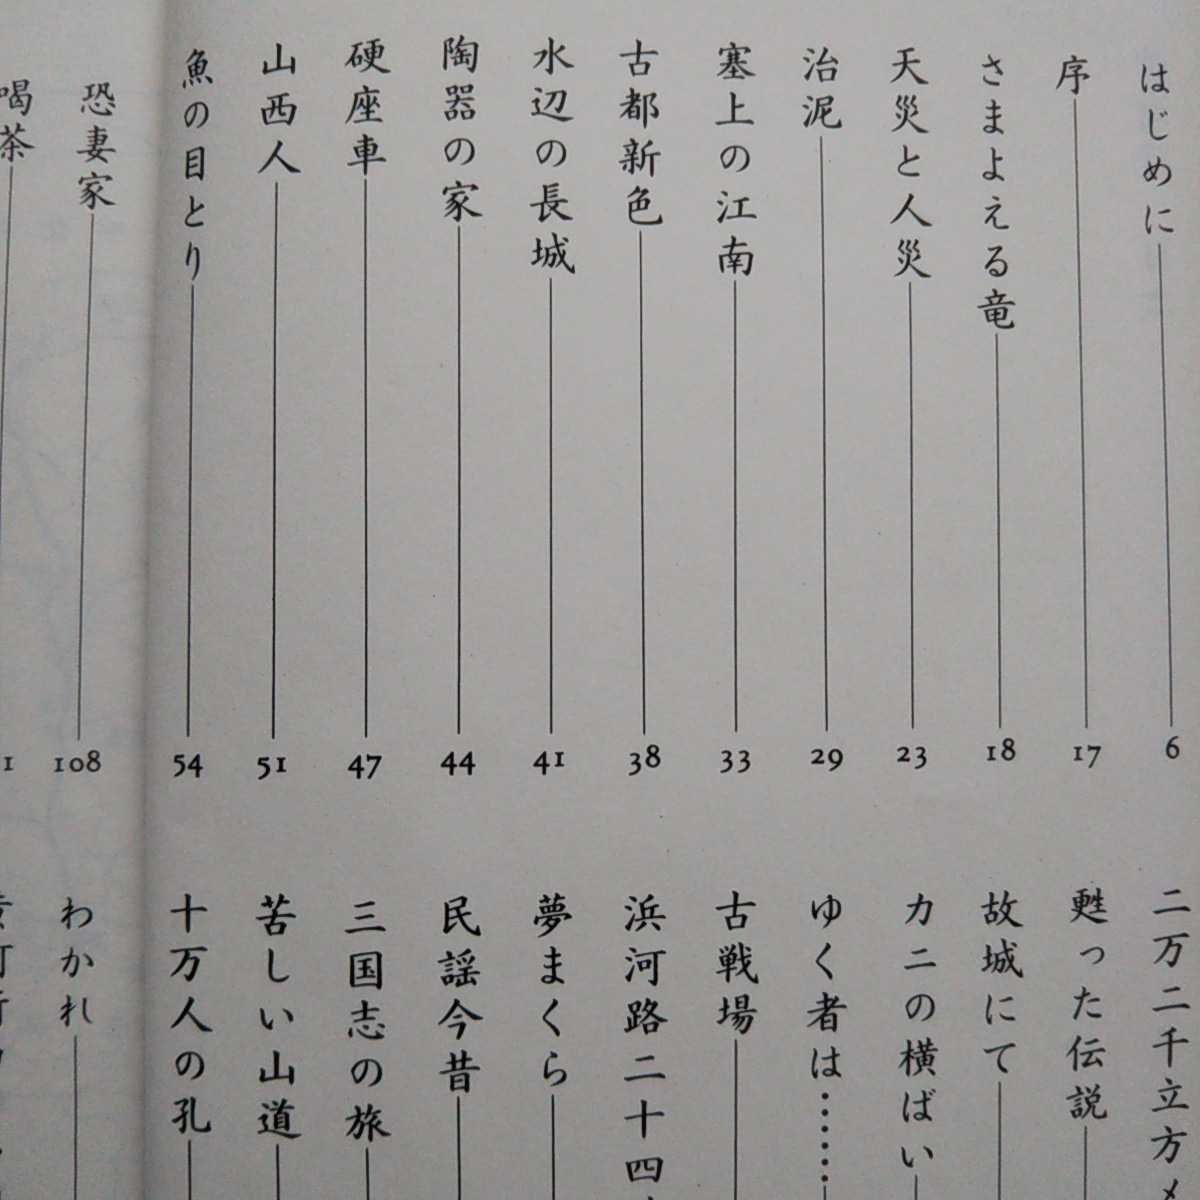 はじめに 6
序 17
さまよえる竜 18
天災と人災 23
治泥 29
塞上の江南 33
古都新色 38
水辺の長城 41
陶器の家 44
硬座車 47
山西人 51
魚の目とり 54
二万二千立方メ
甦った伝説
故城にて
カニの横ばい
ゆく者は……
古戦場
浜河路二十四
夢まくら
民謡今昔
三国志の旅
苦しい山道
十万人の孔
恐妻家 108
喝茶
わかれ